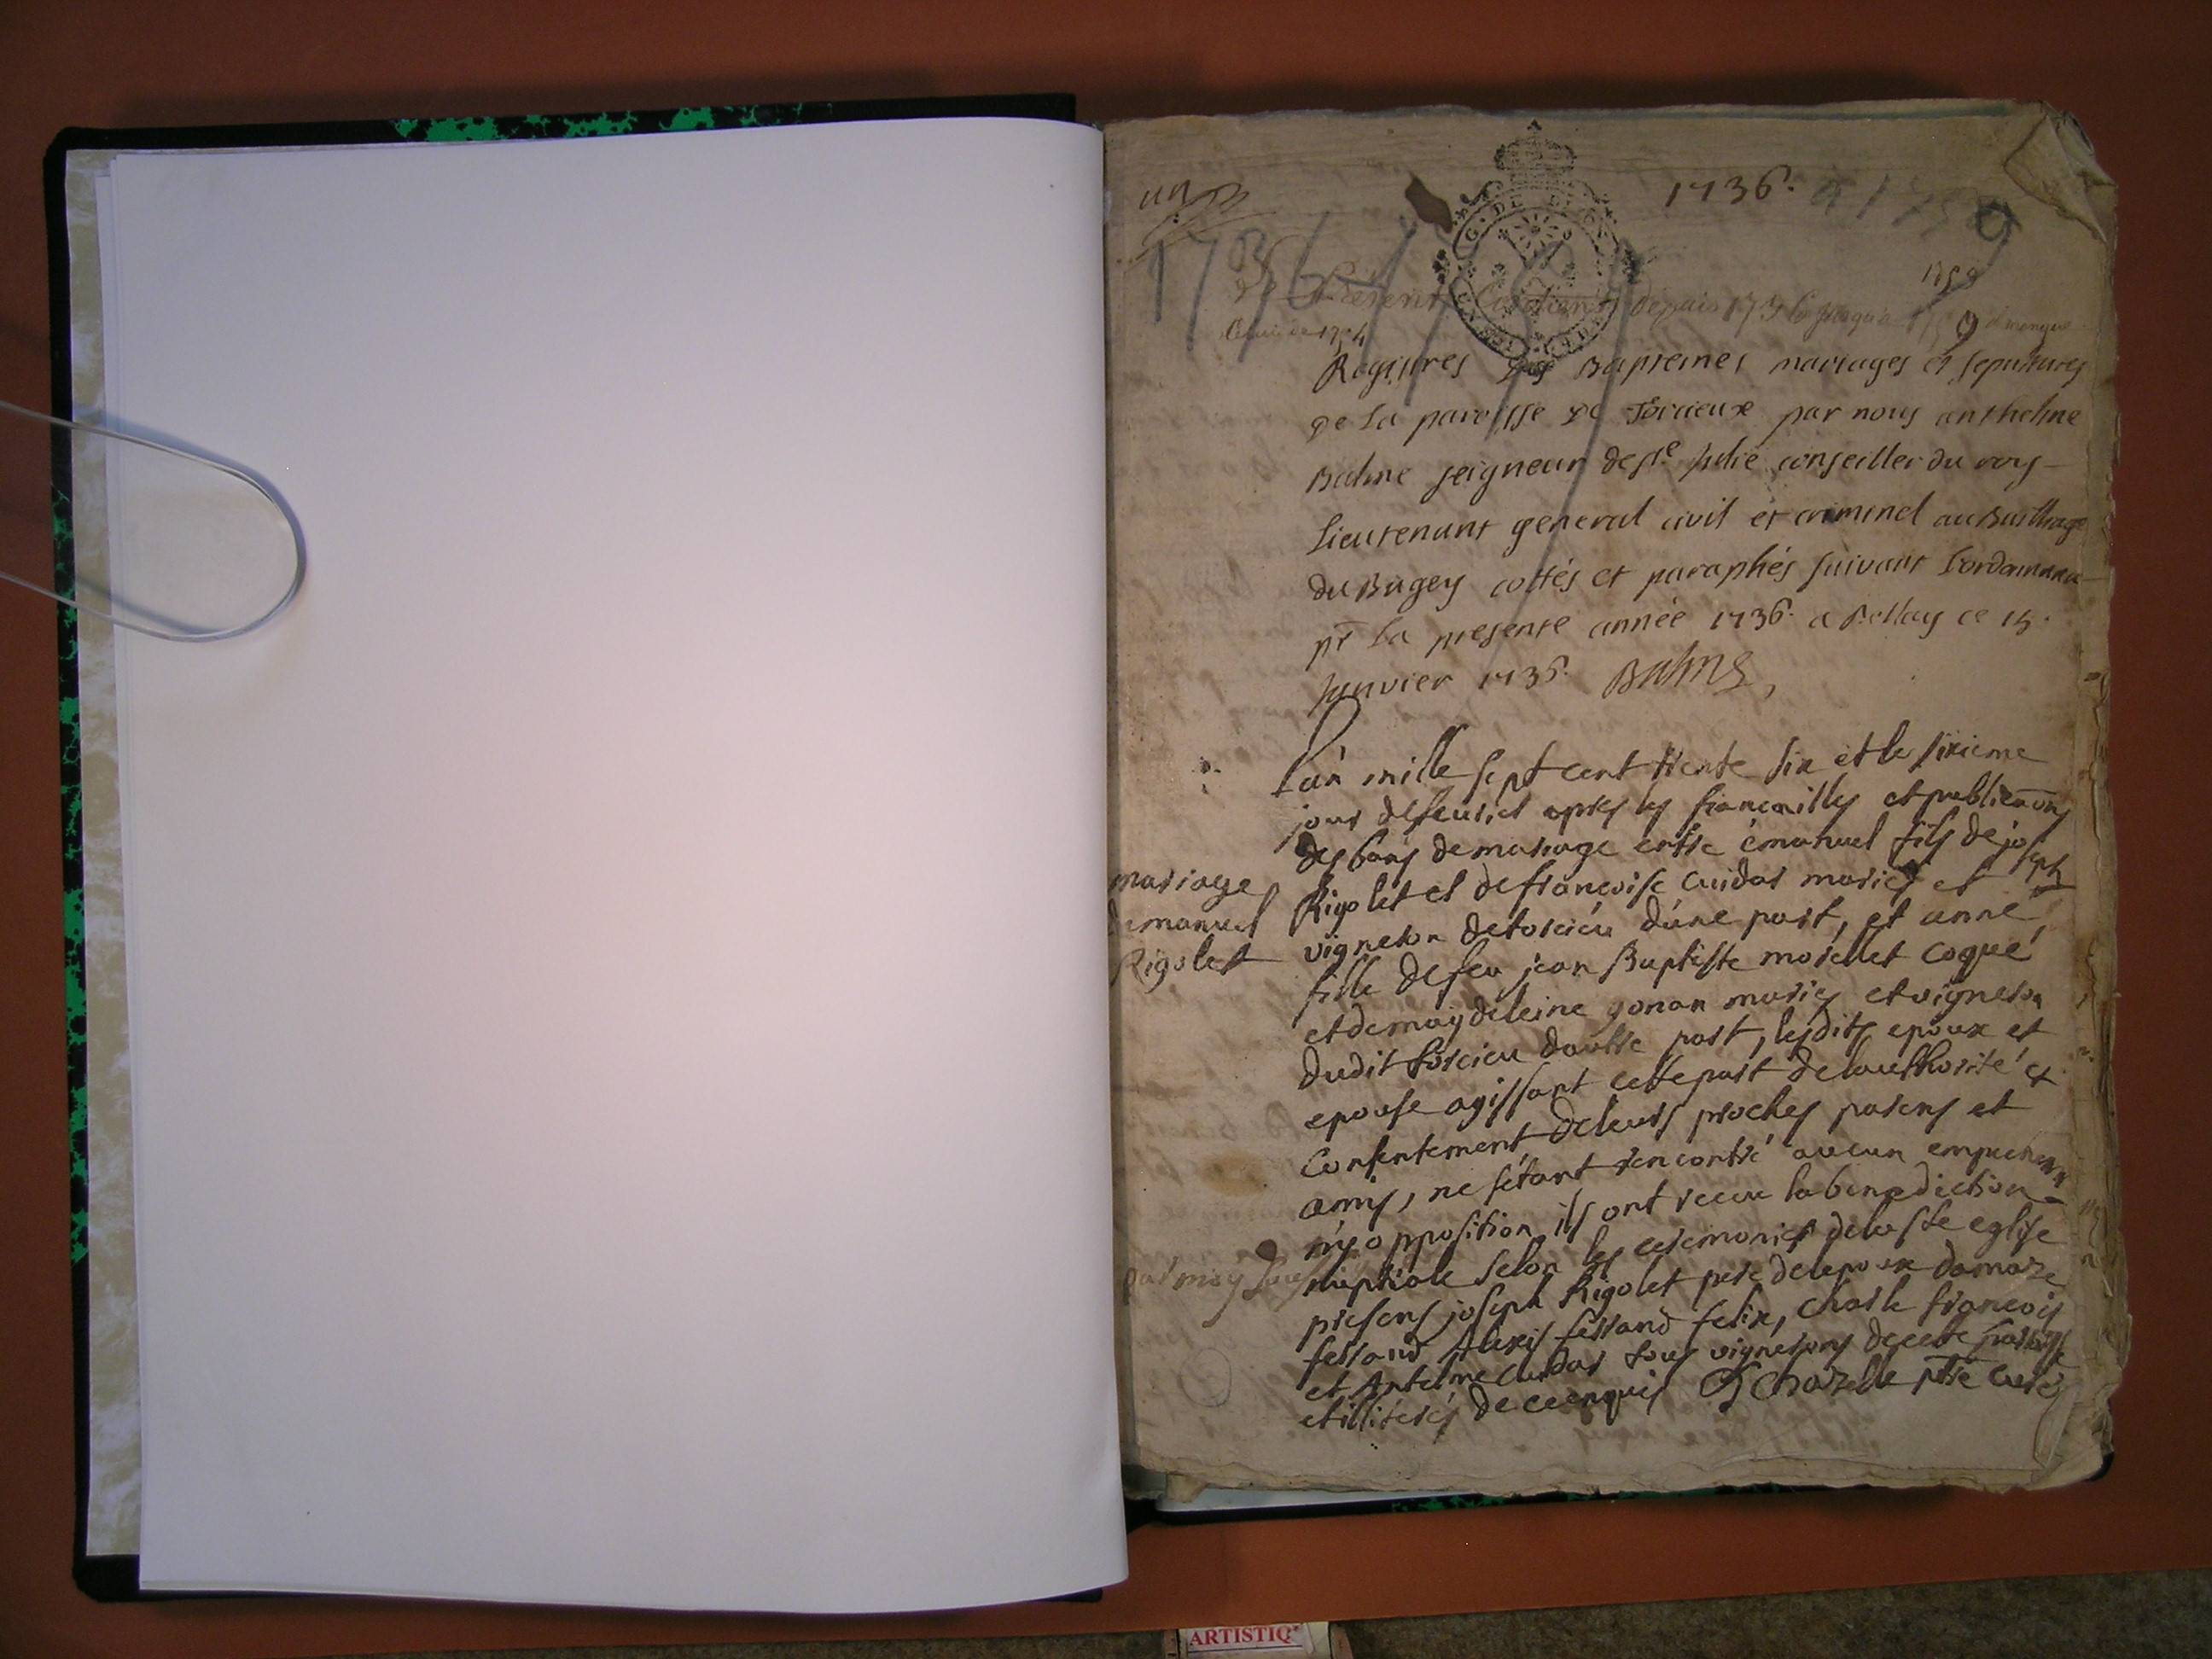 un
1736.
1759
le présent contient depuis 1736 jusqu'a 1759 il manque
l'année 1754
Registres des Baptemes mariages et sepultures
de la paroisse de Torcieux par nous anthelme
Balme seigneur de ste Julie conseiller du roy
Lieutenant general civil et criminel au Bailliage
du Bugey cottés et paraphés suivant L'ordonnance
pr La presente année 1736. a Bellay ce 15.
Janvier 1736. Balme
L'an mille sept cent trente six et le sixieme
jour de feurier apres les fiancailles et publications
des bans de mariage entre émanuel fils de joseph
Rigolet et de francoise cuidar mariés et
vigneron de torcieu d'une part, et anne
fille de feu jean Baptiste morellet coque
et de magdeleine gonan mariés et vigneron
dudit torcieu dautre part, lesdits epoux et
epouse agissant cette part de lauthorité et
Consentement de leurs proches parens et
amis, ne s'étant rencontré aucun empechement
ny opposition ils ont receu la benediction
nuptiale selon les ceremonies de la ste eglise
presens joseph Rigolet pere de lepoux damaze
ferrand Alexis ferrand felix, charle francois
et Antelme Cuidar tous vignerons de cette paroisse
et illiterés de ce enquis Chazelle ptre curé
mariage
demanuel
Rigolet
par moy
ARTISTIQ